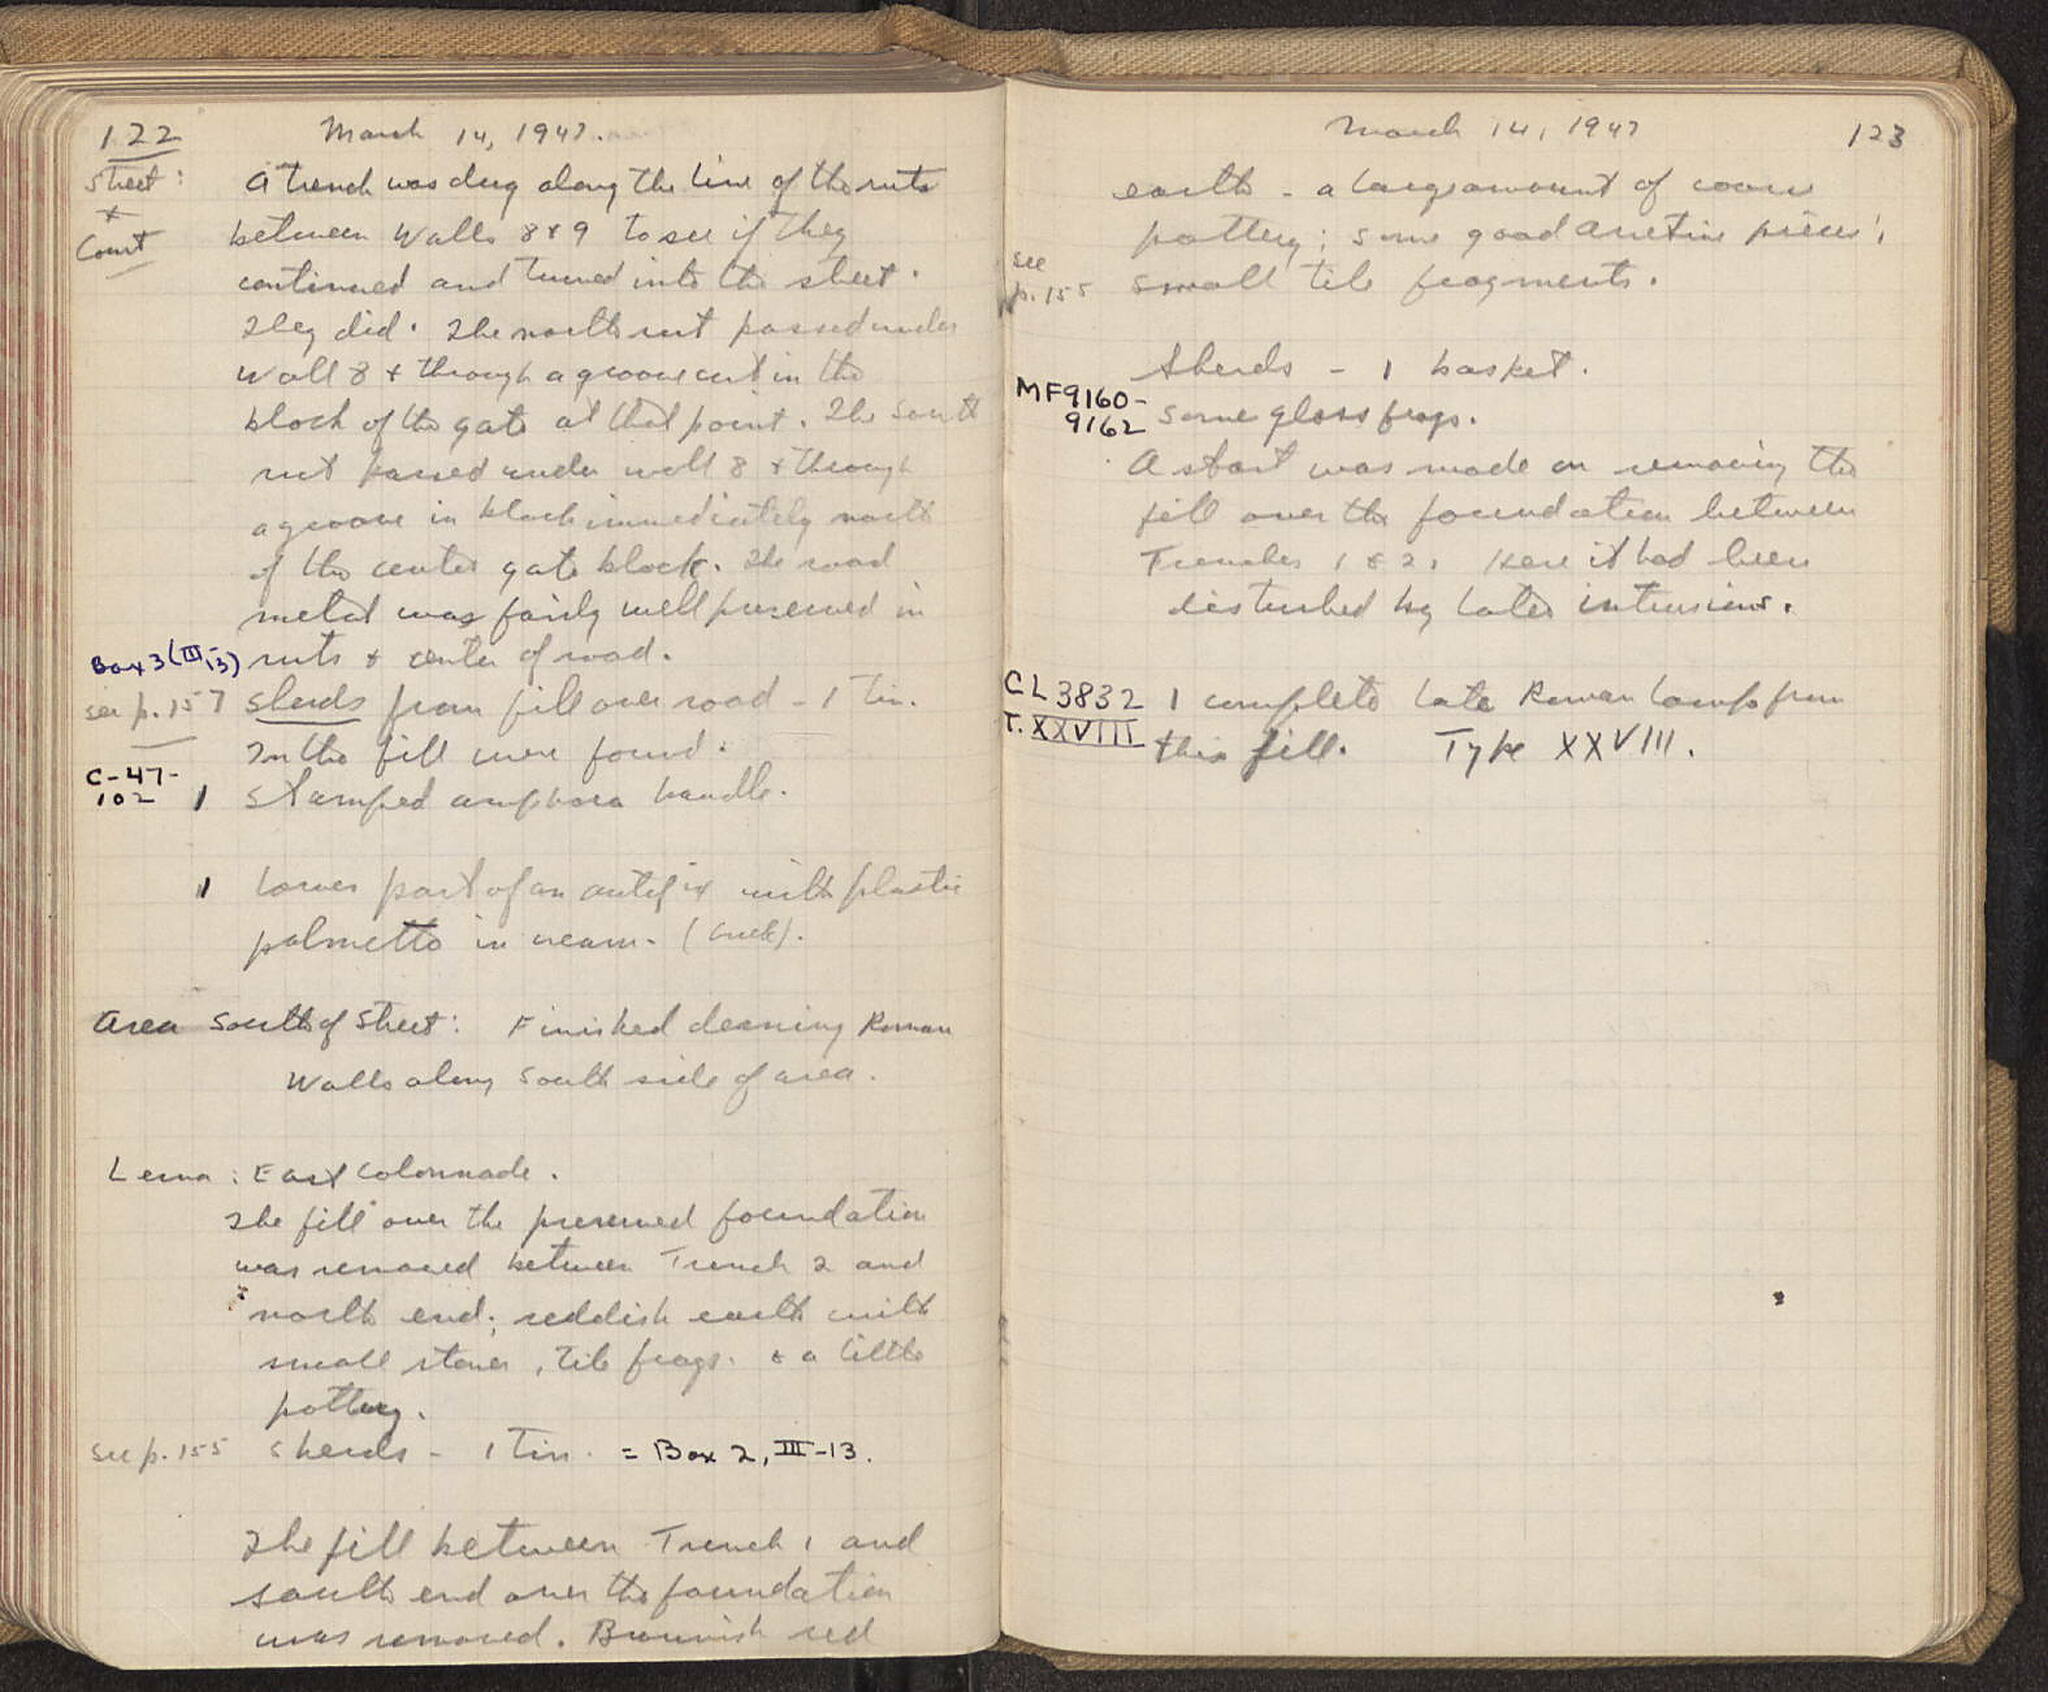 122
March 14, 1947.
Street:
+
Court
A trench was dug along the line of the ruts
between Walls 8 & 9 to see if they
continued and turned into the street.
They did. The north rut passed under
Wall 8 + through a groove cut in the
block of the gate at that point. The south
rut passed under wall 8 + through
a groove in block immediately north
of the center gate block. The road
metal was fairly well preserved in
Box 3 (III-13) ruts & center of road.
see p. 157 sherds from fill over road - 1 Tin.
In the fill were found:
C-47-
102 1 stamped amphora handle.
1 lower part of an antefix with plastic
palmette in cream. (Greek).
Area South of Street: Finished cleaning Roman
Walls along south side of area.
Lerna: East Colonnade.
The fill over the preserved foundation
was removed between Trench 2 and
north end; reddish earth with
small stones, tile frags. & a little
pottery.
see p. 155 sherds - 1 Tin. = Box 2, III-13.
The fill between Trench 1 and
south end over the foundation
was removed. Brownish red
March 14, 1947
123
earth - a large amount of coarse
pottery; some good Arretine pieces;
see
p. 155 small tile fragments.
Sherds - 1 basket.
MF9160-
9162 some glass frags.
A start was made on removing the
fill over the foundation between
Trenches 1 & 2. Here it had been
disturbed by later intrusions.
CL 3832 1 complete late Roman lamp from
T. XXVIII this fill. Type XXVIII.